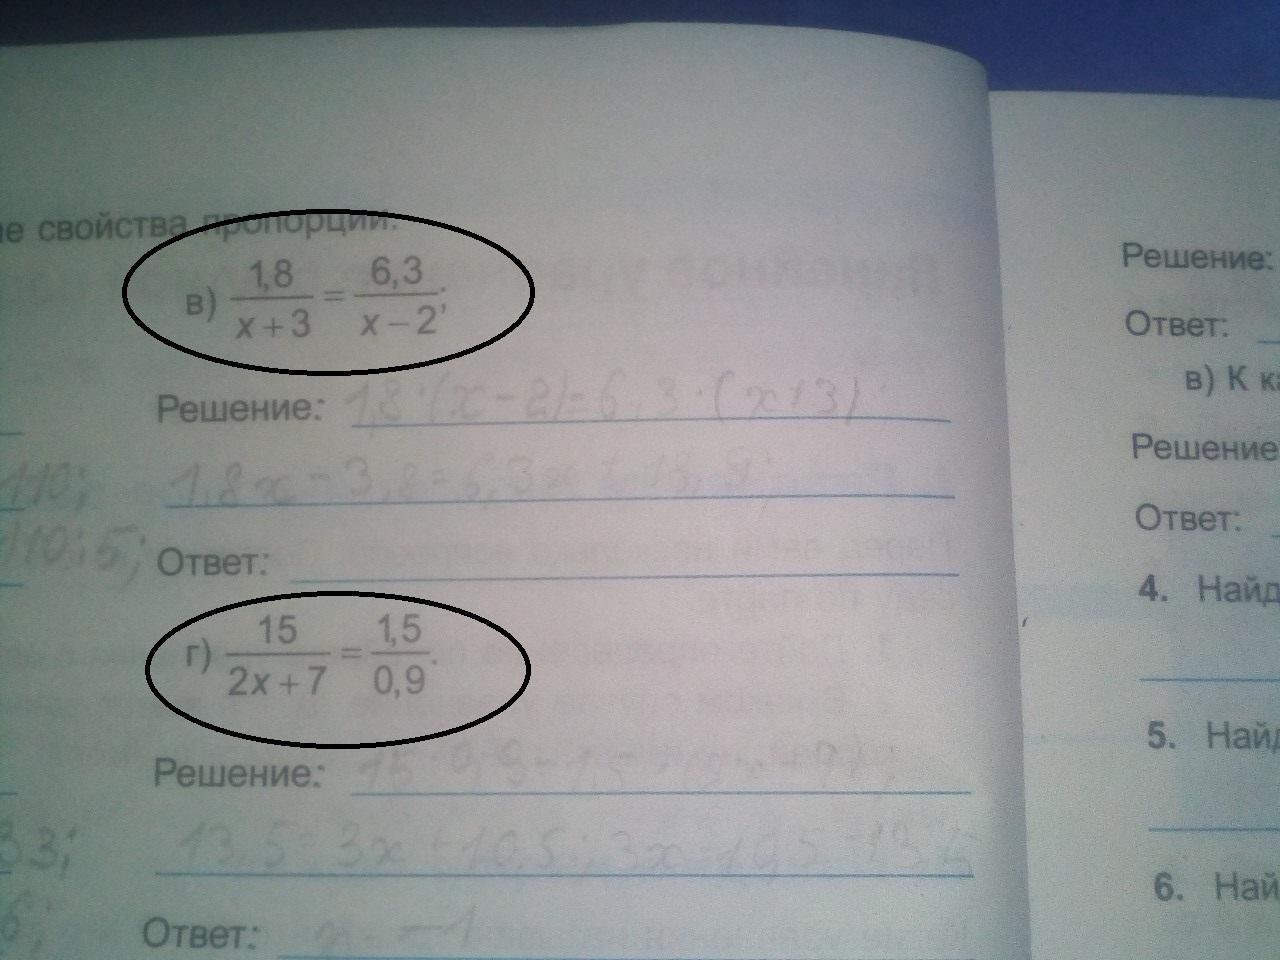 ие свойства пропорции.
в) 1,8/(x + 3) = 6,3/(x − 2);
Решение: 1,8·(x − 2) = 6,3·(x+3);
1,8x − 3,8 = 6,3x + 18,9;
Ответ:
г) 15/(2x + 7) = 1,5/0,9.
Решение: 15·0,9 = 1,5·(2x+7);
13,5 = 3x + 10,5; 3x = 10,5 − 13,5
Ответ: x = −1
110;
110:5;
33;
6;
Решение:
Ответ:
в) К ка
Решение
Ответ:
4. Найд
5. Найд
6. Най